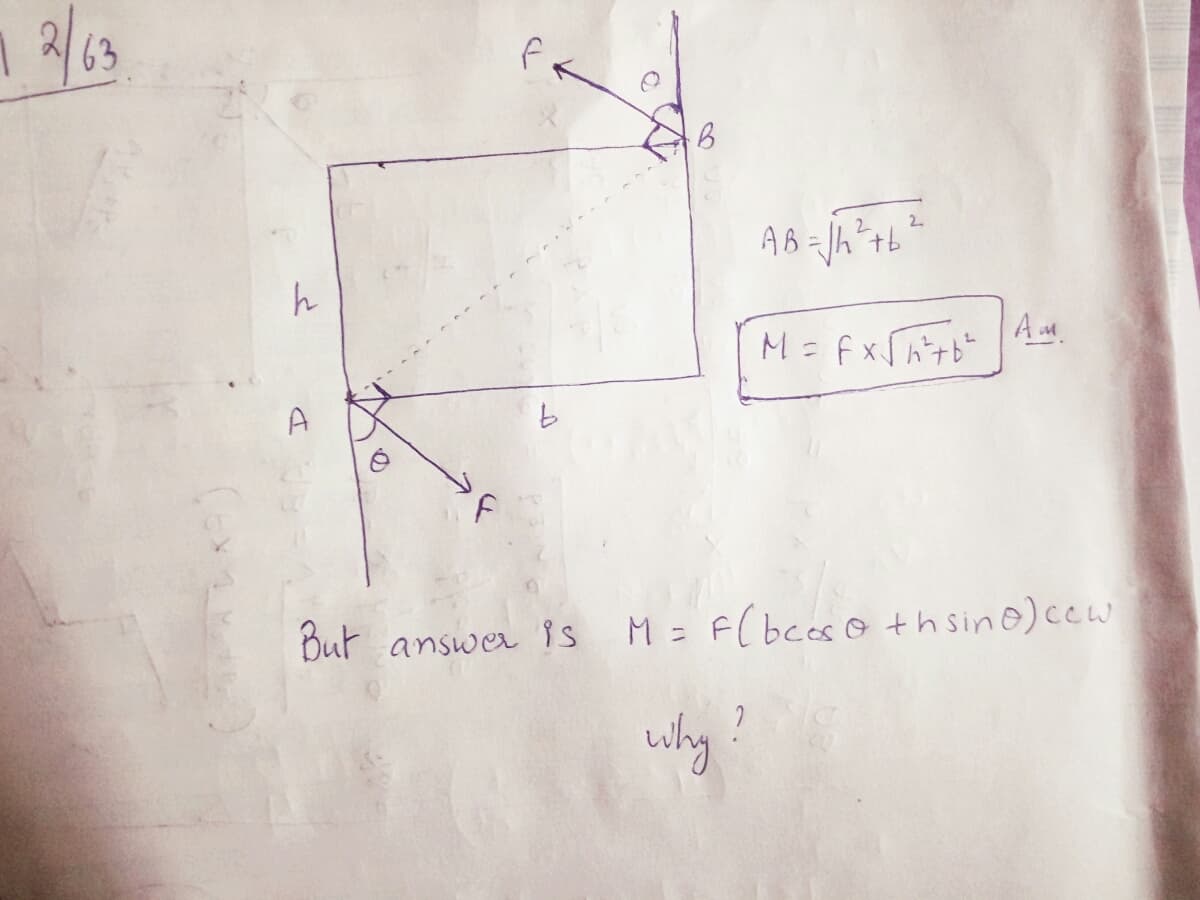 2/63.
F
θ
B
AB = √h²+b²
h
M = F x √h²+b² Ans.
A
b
θ
F
But answer is M = F(bcos θ + hsinθ)ccw
why?